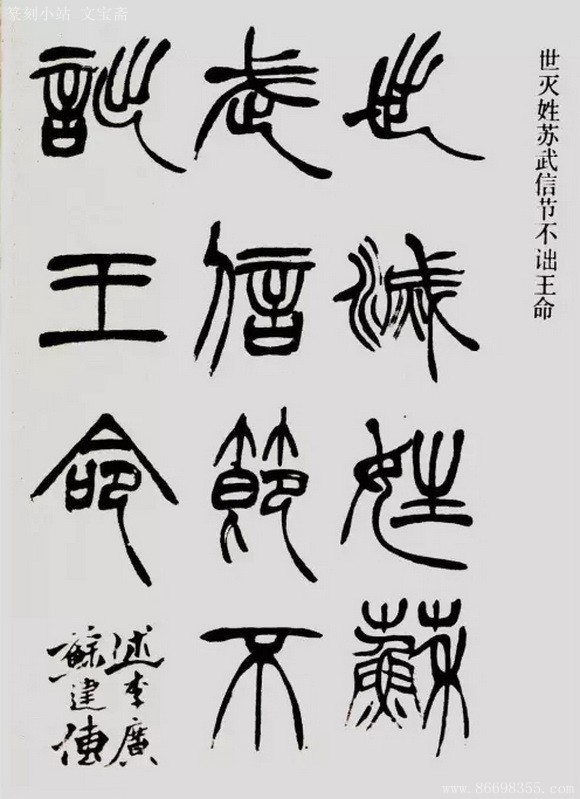 篆刻小站 文宝斋
世灭姓苏武信节不诎王命
世滅姓蘇
武信節不
詘王命
述李廣
蘇建傳
www.86698355.com